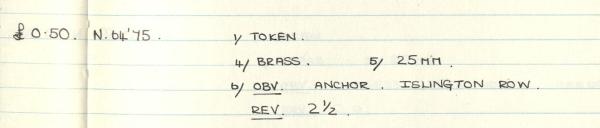 £ 0.50. N.64'75. 1/ TOKEN.
4/ BRASS. 5/ 25 MM.
6/ OBV. ANCHOR. ISLINGTON ROW.
REV. 2½.